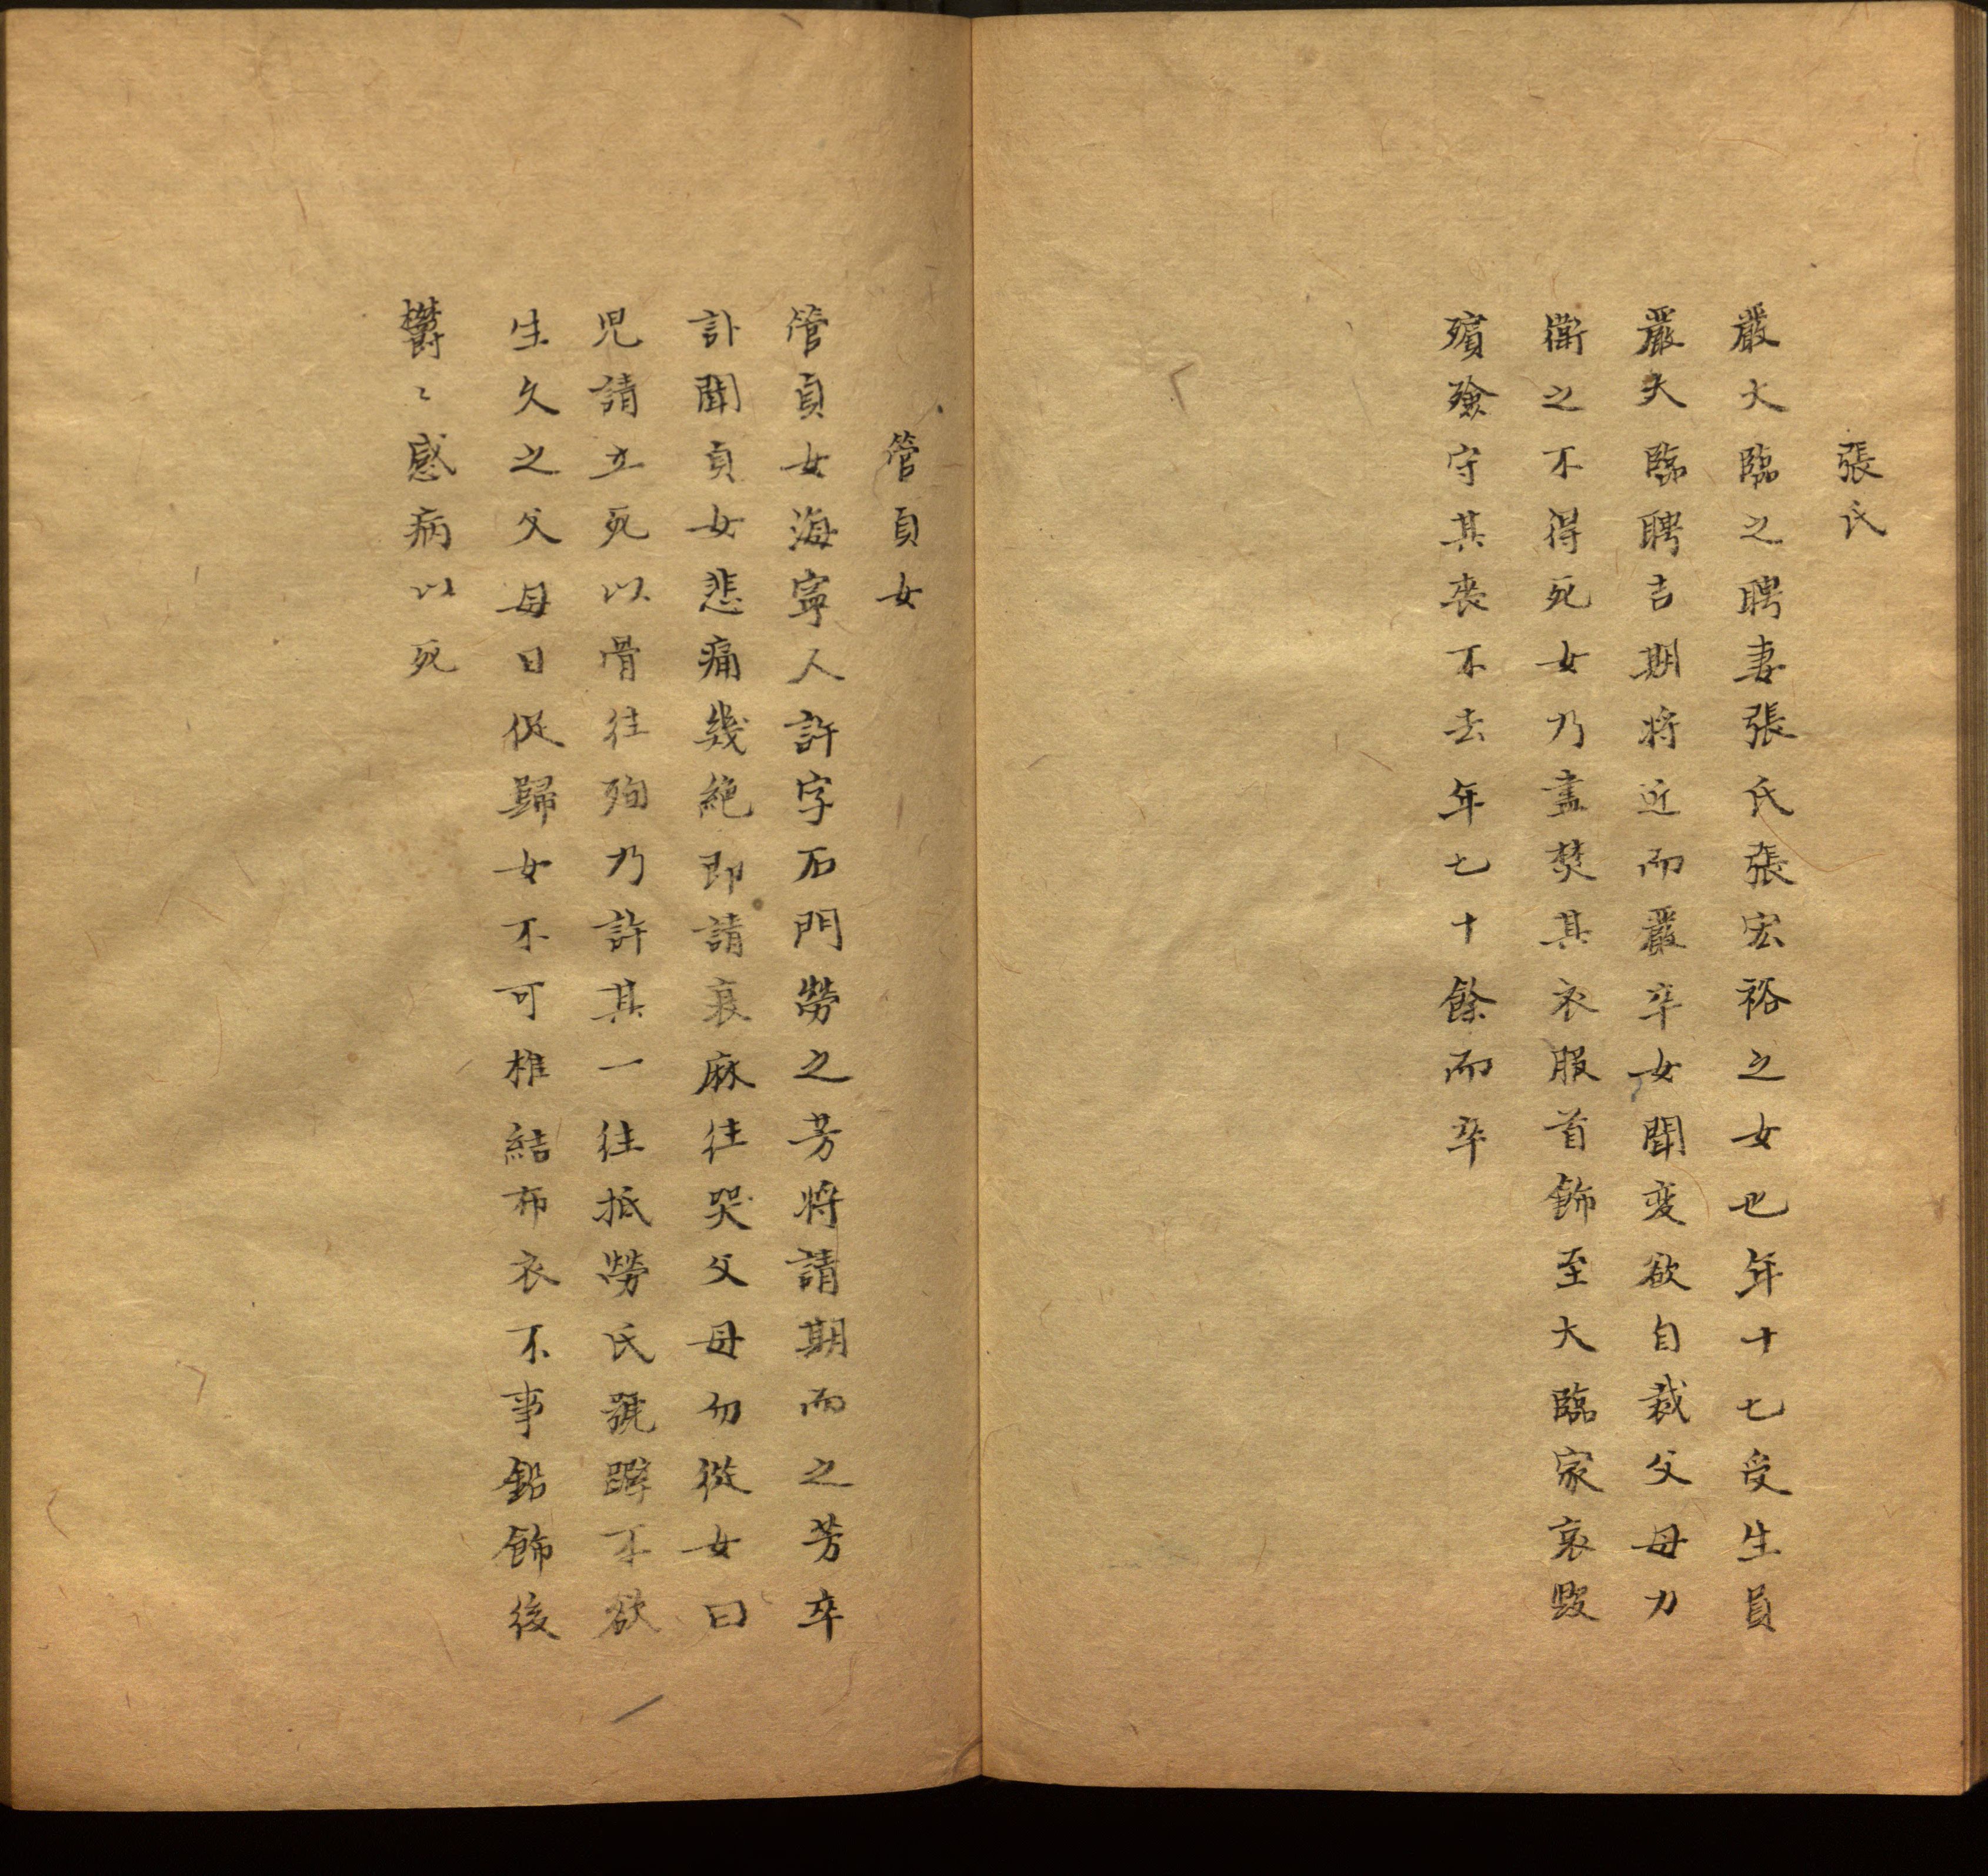 張氏
嚴大臨之聘妻張氏張宏裕之女也年十七受生員
嚴大臨聘吉期將近而嚴卒女聞变欲自裁父母力
衛之不得死女乃盡焚其衣服首飾至大臨家哀毀
殯殮守其喪不去年七十餘而卒
管貞女
管貞女海寧人許字石門勞之芳將請期而之芳卒
訃聞貞女悲痛幾絶即請衰麻往哭父母勿從女曰
児請立死以骨往殉乃許其一往抵勞氏號踴不欲
生久之父母日促歸女不可椎結布衣不事鉛飾後
欝〻感病以死